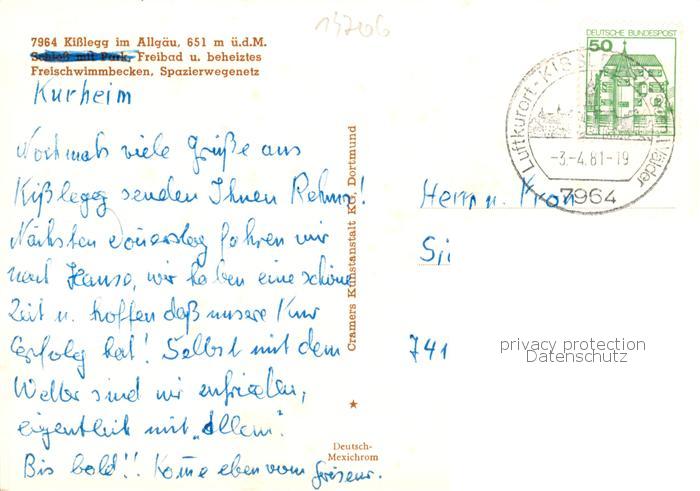 13706
7964 Kißlegg im Allgäu, 651 m ü.d.M.
Schloß mit Park, Freibad u. beheiztes
Freischwimmbecken, Spazierwegenetz
Kurheim
Nochmals viele Grüße aus
Kißlegg senden Ihnen
Nächsten Donnerstag fahren wir
nach Hause, wir haben eine schöne
Zeit u. hoffen daß unsere Kur
Erfolg hat! Selbst mit dem
Wetter sind wir zufrieden,
eigentlich mit „Allem".
Bis bald!! Komme eben vom Friseur.
Cramers Kunstanstalt KG, Dortmund
Deutsch-
Mexichrom
DEUTSCHE BUNDESPOST
50
Luftkurort
-3.-4.81-19
7964
Herrn u.
741
privacy protection
Datenschutz